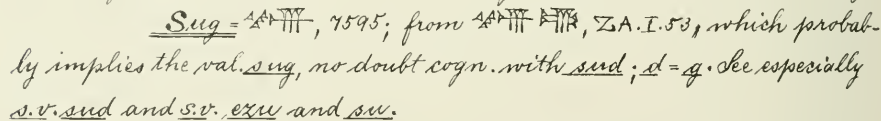 Sug = , 7595; from , ZA. I. 53, which probab-
ly implies the val. sug, no doubt cogn. with sud; d = g. See especially
s.v. sud and s.v. ezu and su.